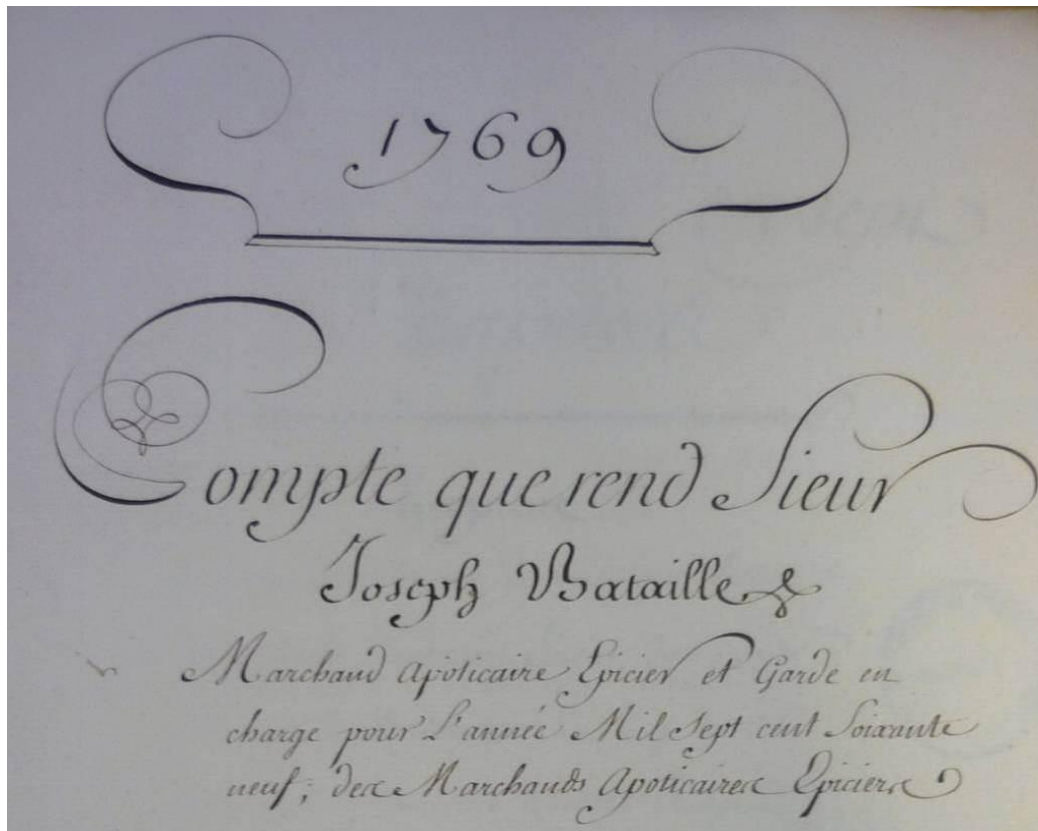 1769
Compte que rend Sieur
Joseph Bataille
Marchand Apoticaire Epicier et Garde en
charge pour L'année Mil Sept cent Soixante
neuf, des Marchands Apoticaires Epiciers